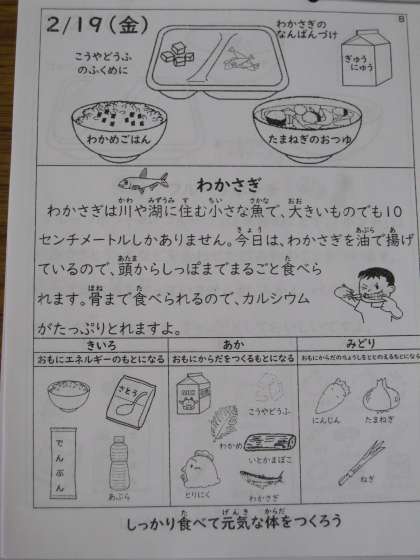 2/19(金)
B
わかさぎの
なんばんづけ
こうやどうふ
のふくめに
ぎゅう
にゅう
わかめごはん
たまねぎのおつゆ
わかさぎ
わかさぎは川や湖に住む小さな魚で、大きいものでも10
センチメートルしかありません。今日は、わかさぎを油で揚げ
ているので、頭からしっぽまでまるごと食べら
れます。骨まで食べられるので、カルシウム
がたっぷりとれますよ。
きいろ
あか
みどり
おもにエネルギーのもとになる
おもにからだをつくるもとになる
おもにからだのちょうしをととのえるもとになる
さとう
でんぷん
あぶら
こうやどうふ
わかめ
いとかまぼこ
とりにく
わかさぎ
にんじん
たまねぎ
ねぎ
しっかり食べて元気な体をつくろう